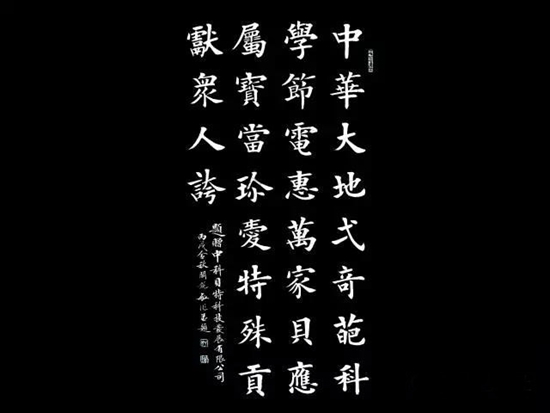 中華大地弌奇葩科
學節電惠萬家貝應
屬寶當珍愛特殊貢
獻衆人誇
題贈中科貝特科技發展有限公司
丙戌金秋 題